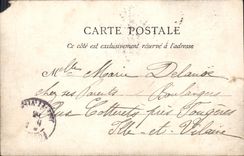 CARTE POSTALE
Ce côté est exclusivement réservé à l'adresse
Mlle Marie Delanoë
chez ses Parents Boulangers
Aux Cotterets près Fougères
Ille-et-Vilaine